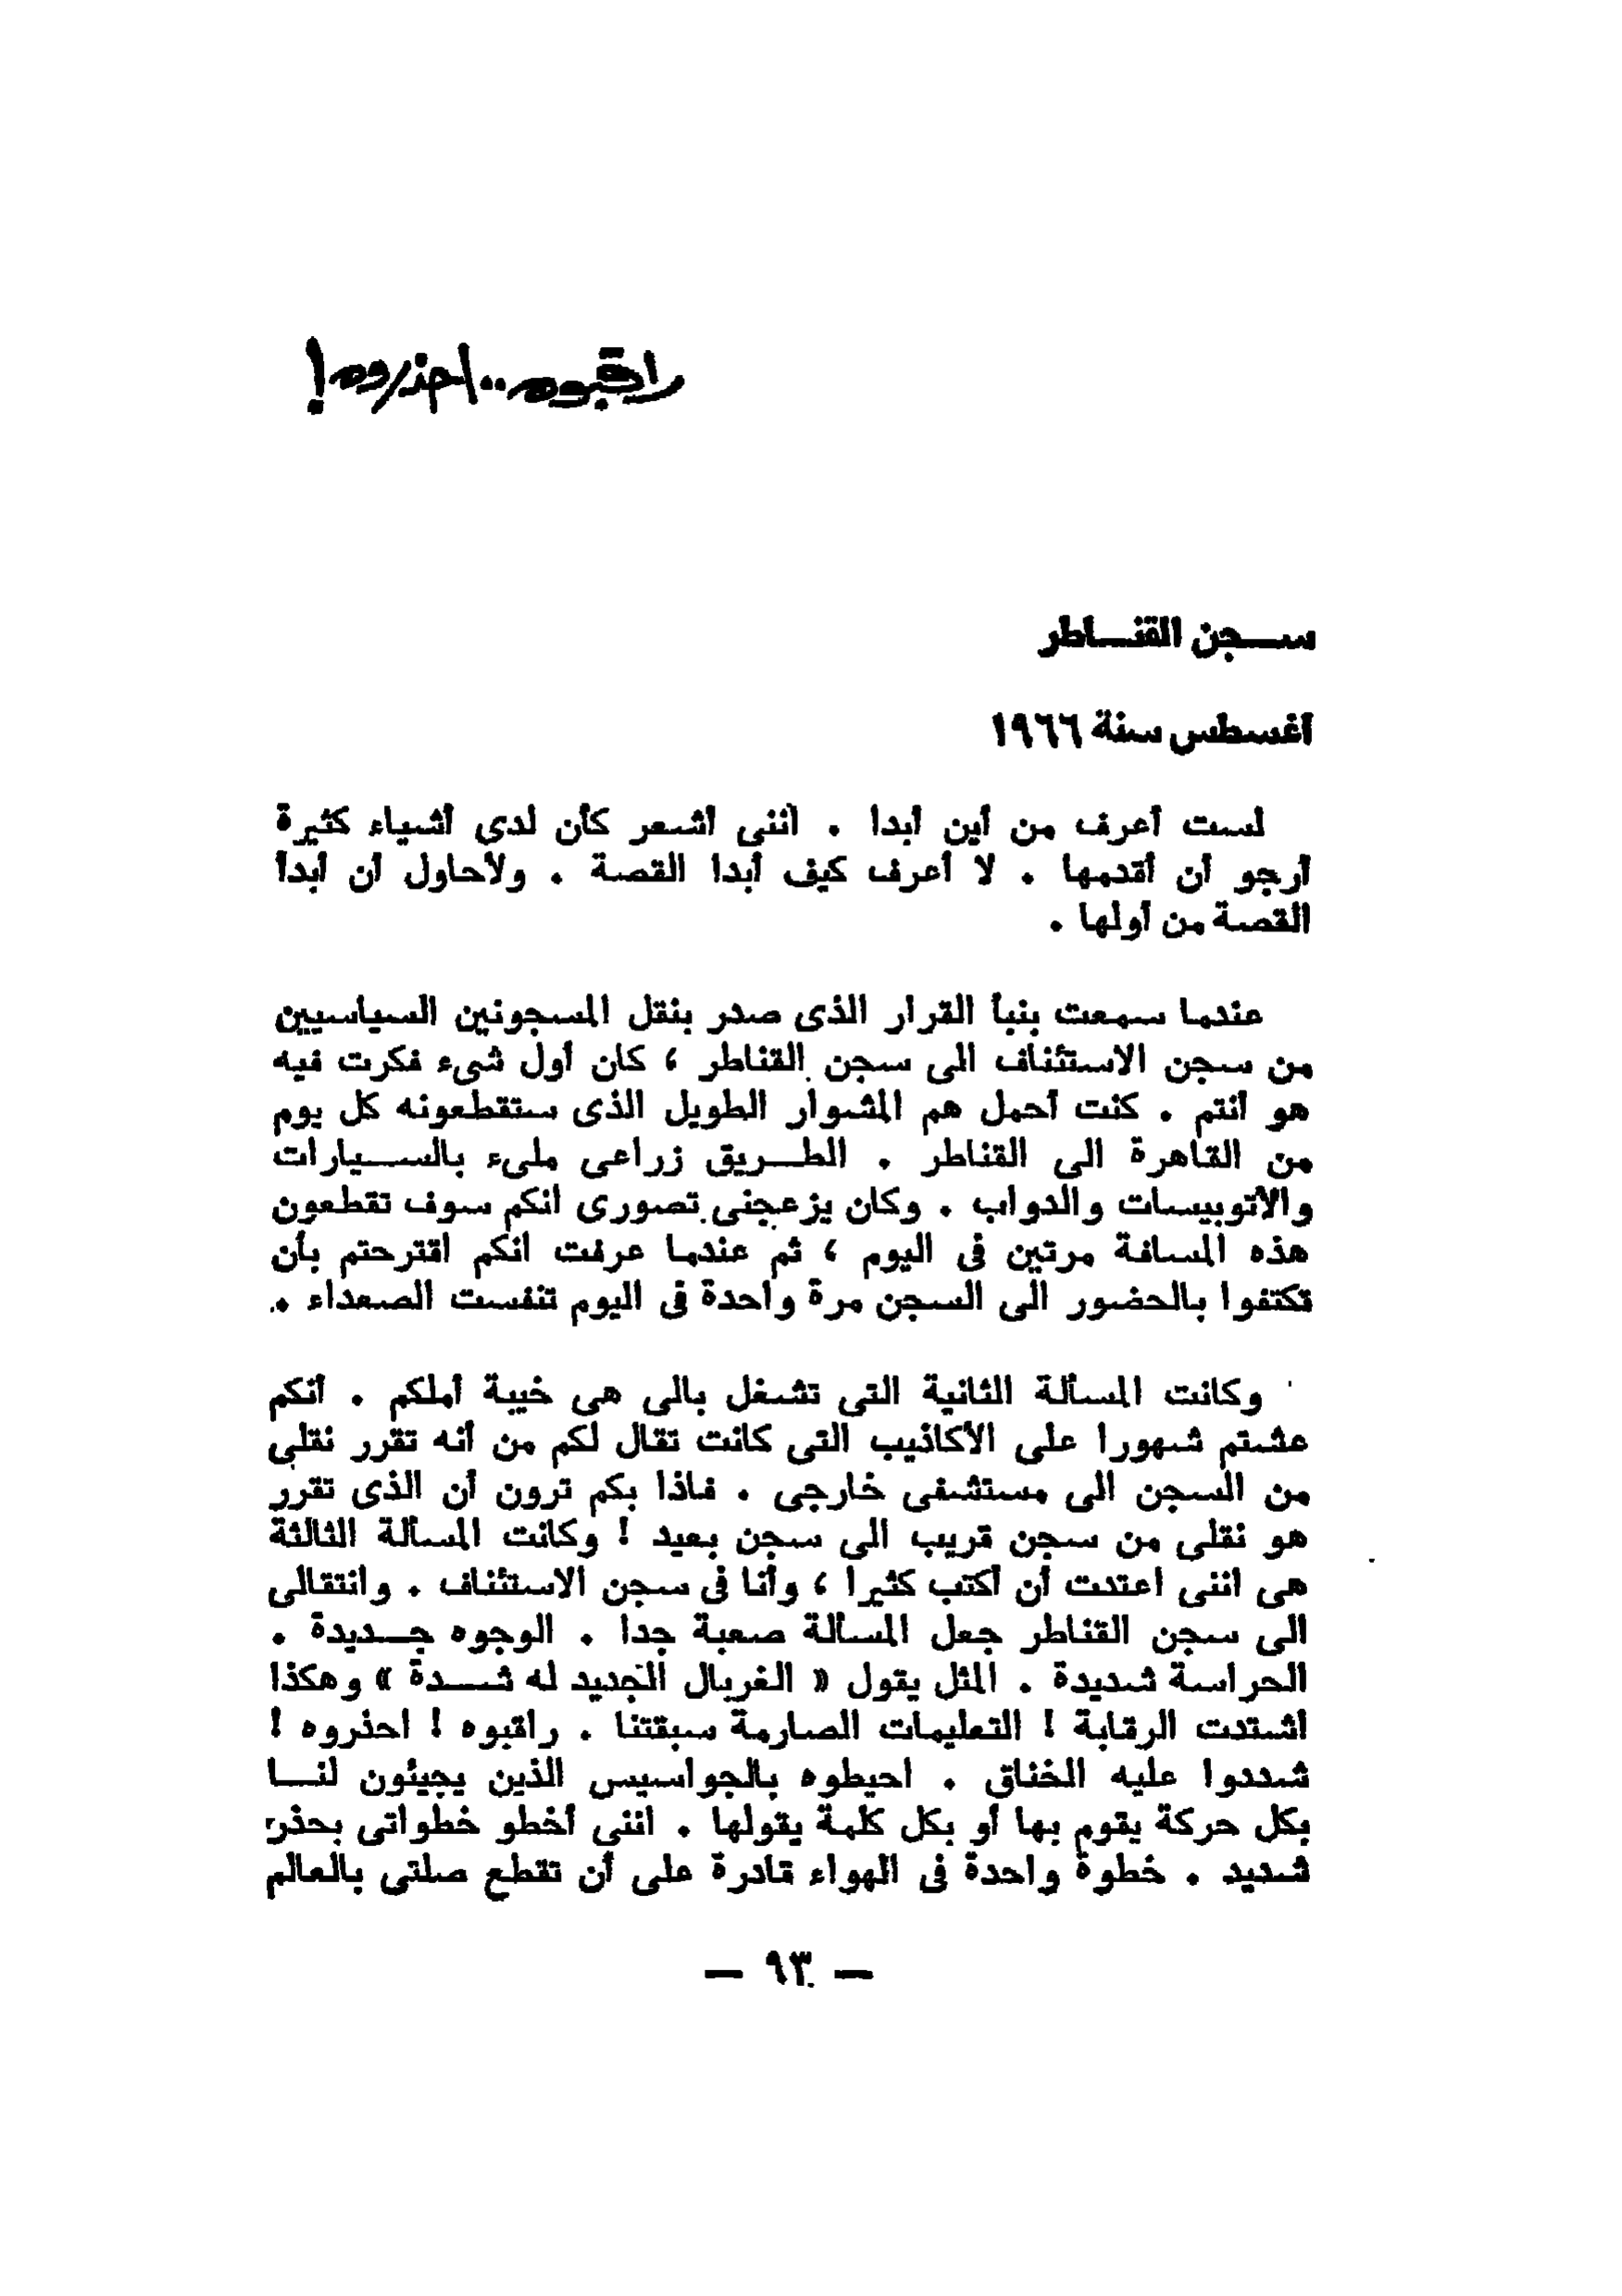 راقبوه .. احذروه !
سجن القناطر
أغسطس سنة ١٩٦٦
لست أعرف من أين أبدا . أننى أشعر كأن لدى أشياء كثيرة
أرجو أن أقدمها . لا أعرف كيف أبدا القصة . ولأحاول أن أبدأ
القصة من أولها .
عندما سمعت بنبأ القرار الذى صدر بنقل المسجونين السياسيين
من سجن الاستئناف الى سجن القناطر ، كان أول شىء فكرت فيه
هو أنتم . كنت أحمل هم المشوار الطويل الذى ستقطعونه كل يوم
من القاهرة الى القناطر . الطريق زراعى ملىء بالسيارات
والأتوبيسات والدواب . وكان يزعجنى تصورى انكم سوف تقطعون
هذه المسافة مرتين فى اليوم ، ثم عندما عرفت انكم اقترحتم بأن
تكتفوا بالحضور الى السجن مرة واحدة فى اليوم تنفست الصعداء .
وكانت المسألة الثانية التى تشغل بالى هى خيبة أملكم . أنكم
عشتم شهورا على الأكاذيب التى كانت تقال لكم من أنه تقرر نقلى
من السجن الى مستشفى خارجى . فاذا بكم ترون أن الذى تقرر
هو نقلى من سجن قريب الى سجن بعيد ! وكانت المسألة الثالثة
هى اننى اعتدت أن أكتب كثيرا ، وأنا فى سجن الاستئناف . وانتقالى
الى سجن القناطر جعل المسألة صعبة جدا . الوجوه جديدة .
الحراسة شديدة . المثل يقول « الغربال الجديد له شدة » وهكذا
اشتدت الرقابة ! التعليمات الصارمة سبقتنا . راقبوه ! احذروه !
شددوا عليه الخناق . احيطوه بالجواسيس الذين يجيئون لنا
بكل حركة يقوم بها أو بكل كلمة يقولها . اننى أخطو خطواتى بحذر
شديد . خطوة واحدة فى الهواء قادرة على أن تقطع صلتى بالعالم
— ٩٣ —